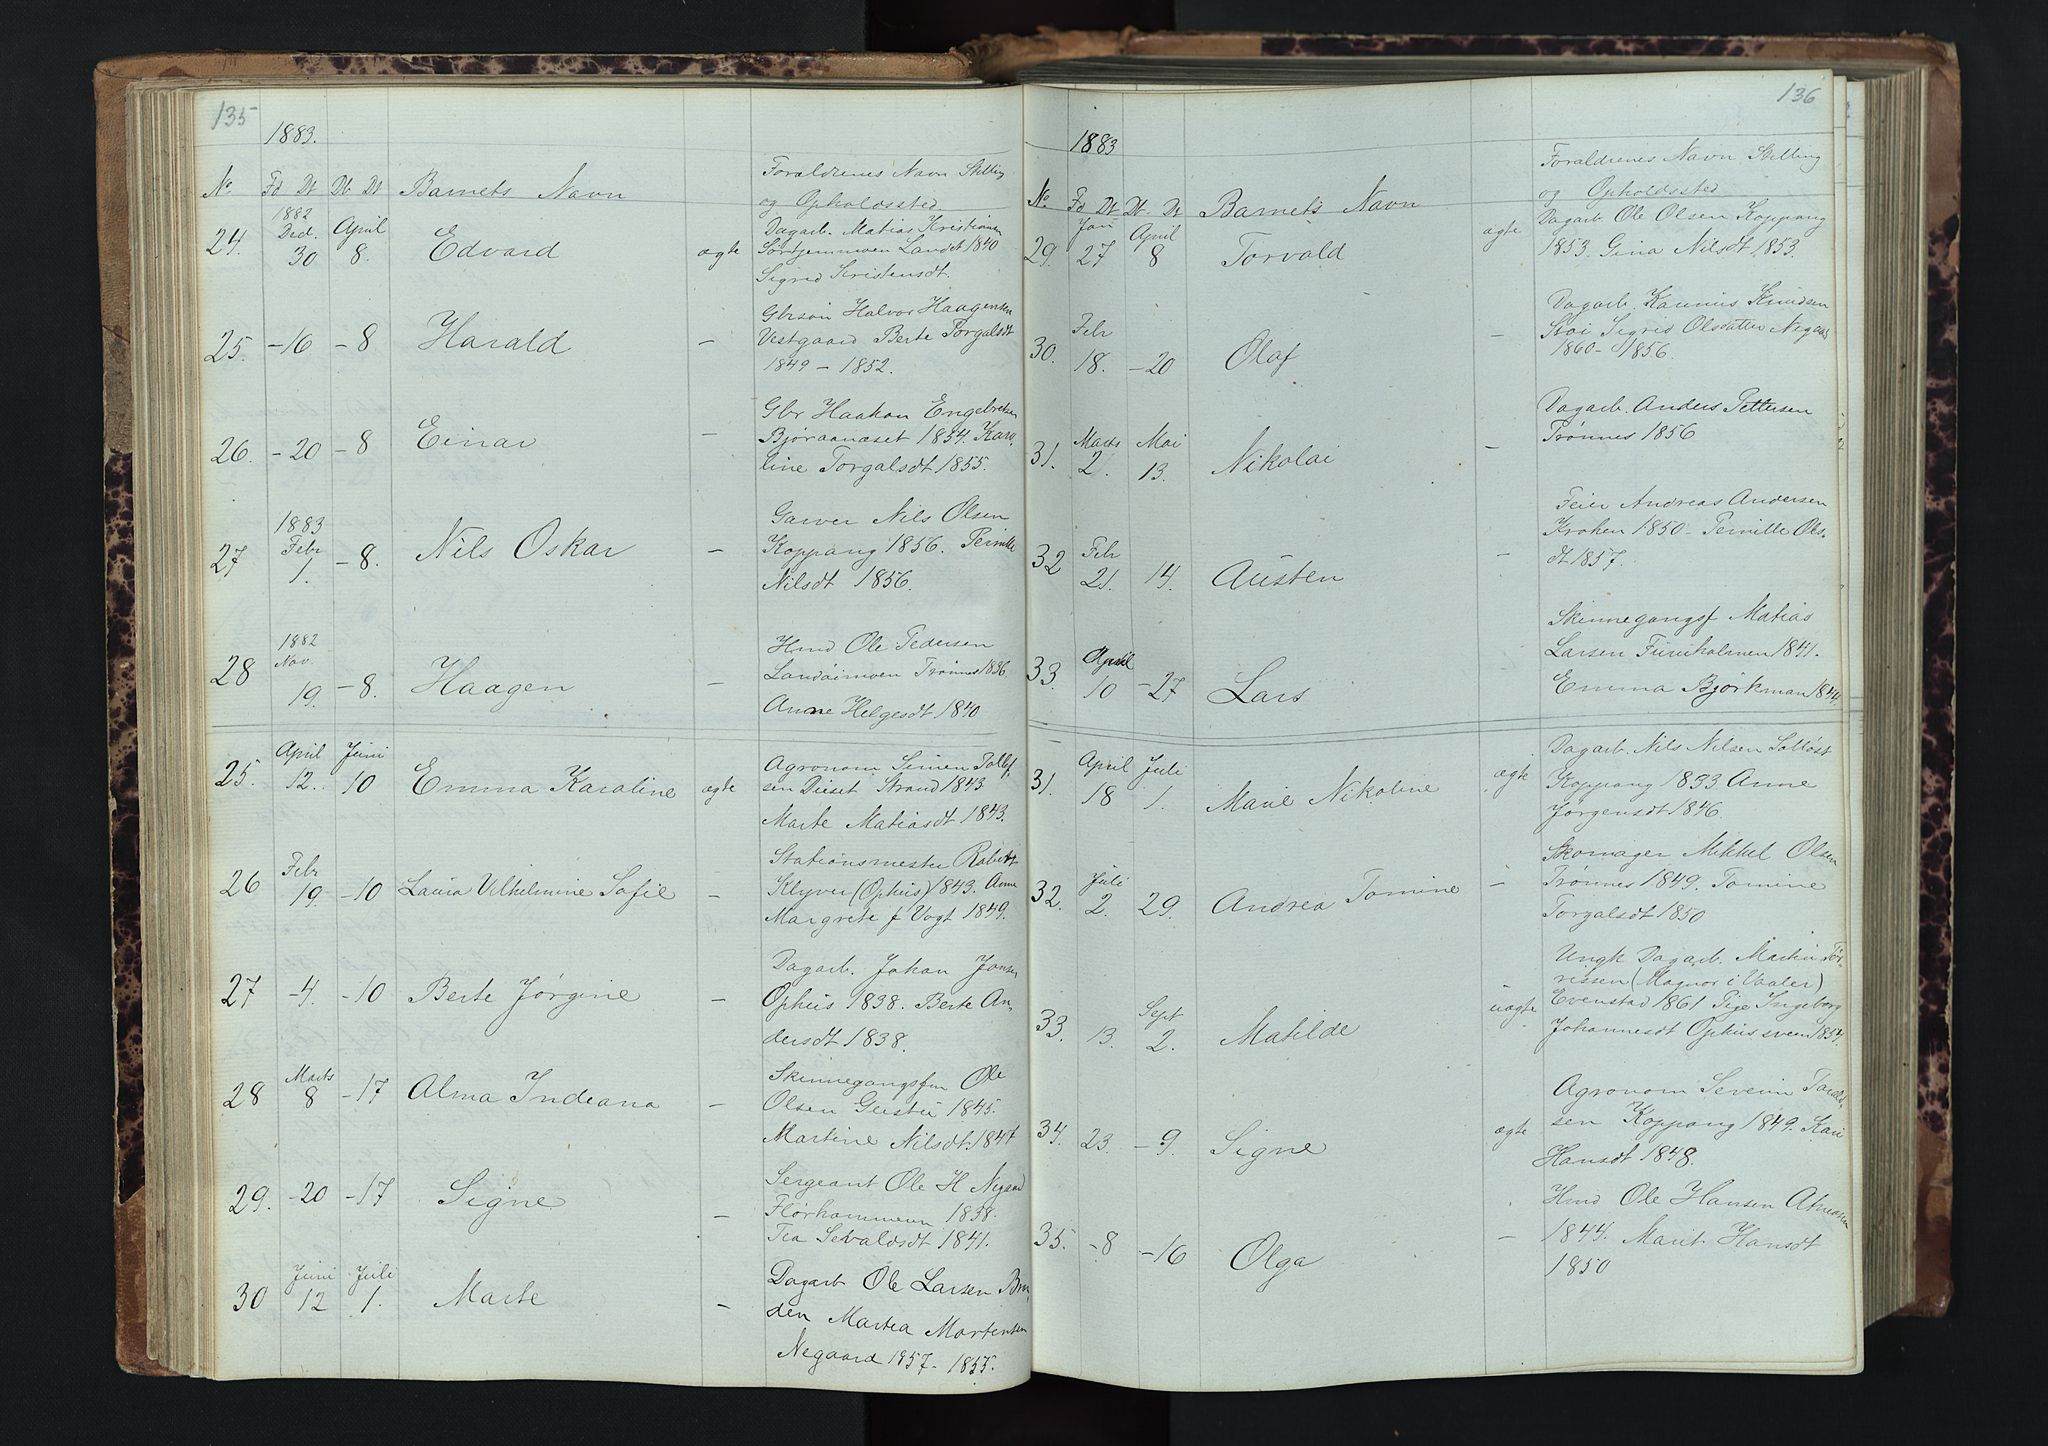 135
1883.
No. Fd Dt Db. Dt Barnets Navn Forældrenes Navn Stilling
og Opholdssted
24. 1882 Ded. 30 April 8. Edvard ægte Dagarb. Matias Kristiansen
Landet 1840
Sigrid Kristensdt.
25. -16 -8 Harald - Gbrsön Halvor Haagensen
Vestgaard Berte Torgalsdt
1849 - 1852.
26. -20 -8 Einar - Gbr Haakon Engebretsen
Bjøraanæset 1854. Karo-
line Torgalsdt 1855.
27 1883 Febr 1. -8. Nils Oskar - Garver Nils Olsen
Koppang 1856. Pernille
Nilsdt 1856.
28 1882 Nov. 19. -8. Haagen - Hmd Ole Pedersen
Landsimoen Trønnes 1836.
Anne Helgesdt 1840
25. April 12. Juni 10 Emma Karoline ægte Agronom Simen Tollef-
sen Deiset Strand 1843
Marte Matiasdt 1843.
26 Febr 19. -10 Laura Vilhelmine Sofie - Stationsmester Robert
Klyver (Ophus) 1843. Anne
Margrete f Vogt 1849.
27 -4. -10 Berte Jørgine - Dagarb. Johan Jonsen
Ophus 1838. Berte An-
dersdt 1838.
28 Marts 8 -17 Alma Indeana - Skinnegangsfm Ole
Olsen 1845.
Martine Nilsdt 1847
29. -20 -17 Signe - Sergeant Ole H Negaard
Flørhammeren 1838.
Tea Sevaldsdt 1841.
30 Juni 12 Juli 1. Marte - Dagarb Ole Larsen Bru-
den Martea Mortensen
Negaard 1957 - 1855.
136
1883
No. Fd Dt Db. Dt Barnets Navn Forældrenes Navn Stilling
og Opholdssted
29. Jan 27 April 8 Torvald ægte Dagarb. Ole Olsen Koppang
1853. Gina Nilsdt 1853.
30. Febr 18. -20 Olaf - Dagarb. Rasmus Knudsen
Stai Sigrid Olsdatter Negaard
1860 - 1856.
31. Marts 2. Mai 13. Nikolai - Dagarb. Anders Pettersen
Trønnes 1856
32 Feb 21 14. Austen - Feier Andreas Andersen
Kroken 1850 - Pernille Ols-
dt 1857.
33. April 10 -27 Lars Skinnegangsf Matias
Larsen Furuholmen 1841.
Emma Bjørkman 1844.
31. April 18 Juli 1. Marie Nikoline ægte Dagarb. Nils Nilsen
Koppang 1833 Anne
Jørgensdt 1846.
32. Juli 2. 29. Andrea Tomine - Skomager Mikkel Olsen
Trønnes 1849. Tomine
Torgalsdt 1850
33. 13. Sept 2. Matilde uægte Ungk Dagarb. Martin Tor-
rissen (Magnor i Vaaler)
Evenstad 1861 Pige Ingeborg
Johannesdt Ophus sveen 1854.
34. 23. -9. Signe ægte Agronom Severin Tarald-
sen Koppang 1849. Kari
Hansdt 1848.
35. -8 -16 Olga - Hmd Ole Hansen Atneosen
1844. Marit Hansdt
1850